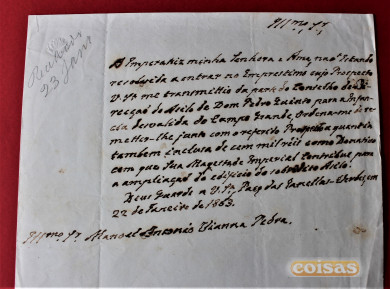 Illmo. Sr.
Recebida
23 Janr
A Imperatriz minha Senhora e Ama, não estando
resolvida a entrar no Emprestimo cujo Prospecto
V. Sa. me transmittio da parte do Conselho de Di-
recção do Asilo de Dom Pedro Quinto para a Infan-
cia desvalida do Campo Grande, Ordena-me de re-
metter-lhe junto com o referido Prospecto a quantia
tambem inclusa de cem mil réis como Donativo
com que Sua Magestade Imperial Contribue para
a ampliação do edificio do sobredito Asilo.
Deus Guarde a V. Sa. Paço das Janellas-Verdes, em
22 de Janeiro de 1863.
Illmo. Sr. Manoel Antonio Vianna Pedra.
coisas